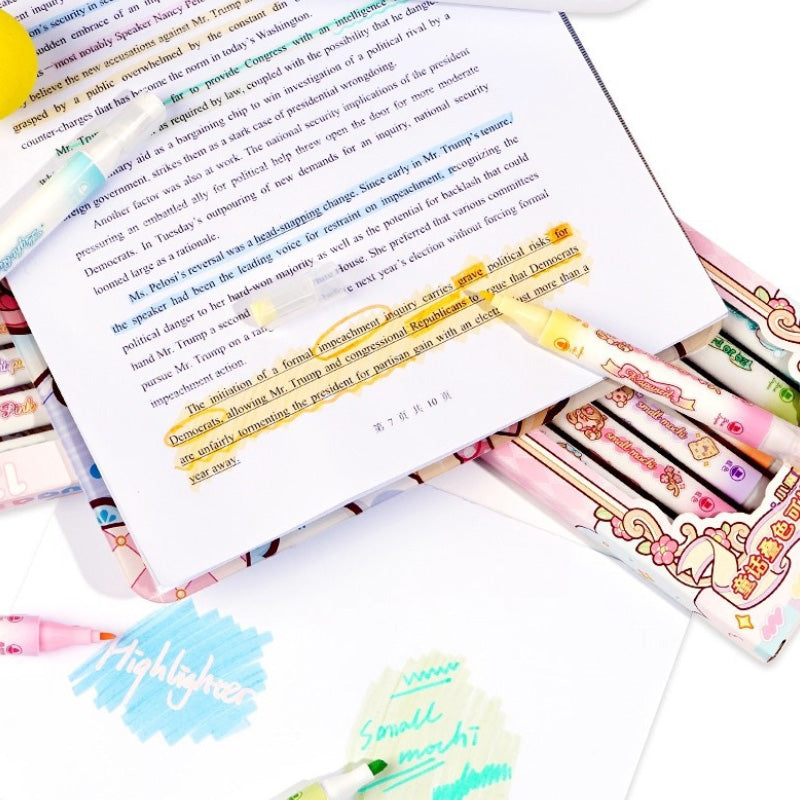 n's security in se
sudden embrace of an imp
—most notably Speaker Nancy Pelo
y believe the new accusations against Mr. Trump a
grasped by a public overwhelmed by the constant din
counter-charges that has become the norm in today's Washington.
Mr. Trum far to provide Congress with an intelligence
as required by law, coupled with the possibility that he dangle
nary aid as a bargaining chip to win investigation of a political rival by a
foreign government, strikes them as a stark case of presidential wrongdoing.
Another factor was also at work. The national security implications of the president
pressuring an embattled ally for political help threw open the door for more moderate
Democrats. In Tuesday's outpouring of new demands for an inquiry, national security
loomed large as a rationale.
Ms. Pelosi's reversal was a head-snapping change. Since early in Mr. Trump's tenure,
the speaker had been the leading voice for restraint on impeachment, recognizing the
political danger to her hard-won majority as well as the potential for backlash that could
hand Mr. Trump a second House. She preferred that various committees
pursue Mr. Trump on a rang e next year's election without forcing formal
impeachment action.
The initiation of a formal impeachment inquiry carries grave political risks for
Democrats, allowing Mr. Trump and congressional Republicans to rgue that Democrats
are unfairly tormenting the president for partisan gain with an elect just more than a
year away.
第 7 页 共 10 页
Peanut
small mochi
small mochi
Pink
童话叠色可
Highlighter
Small
mochi